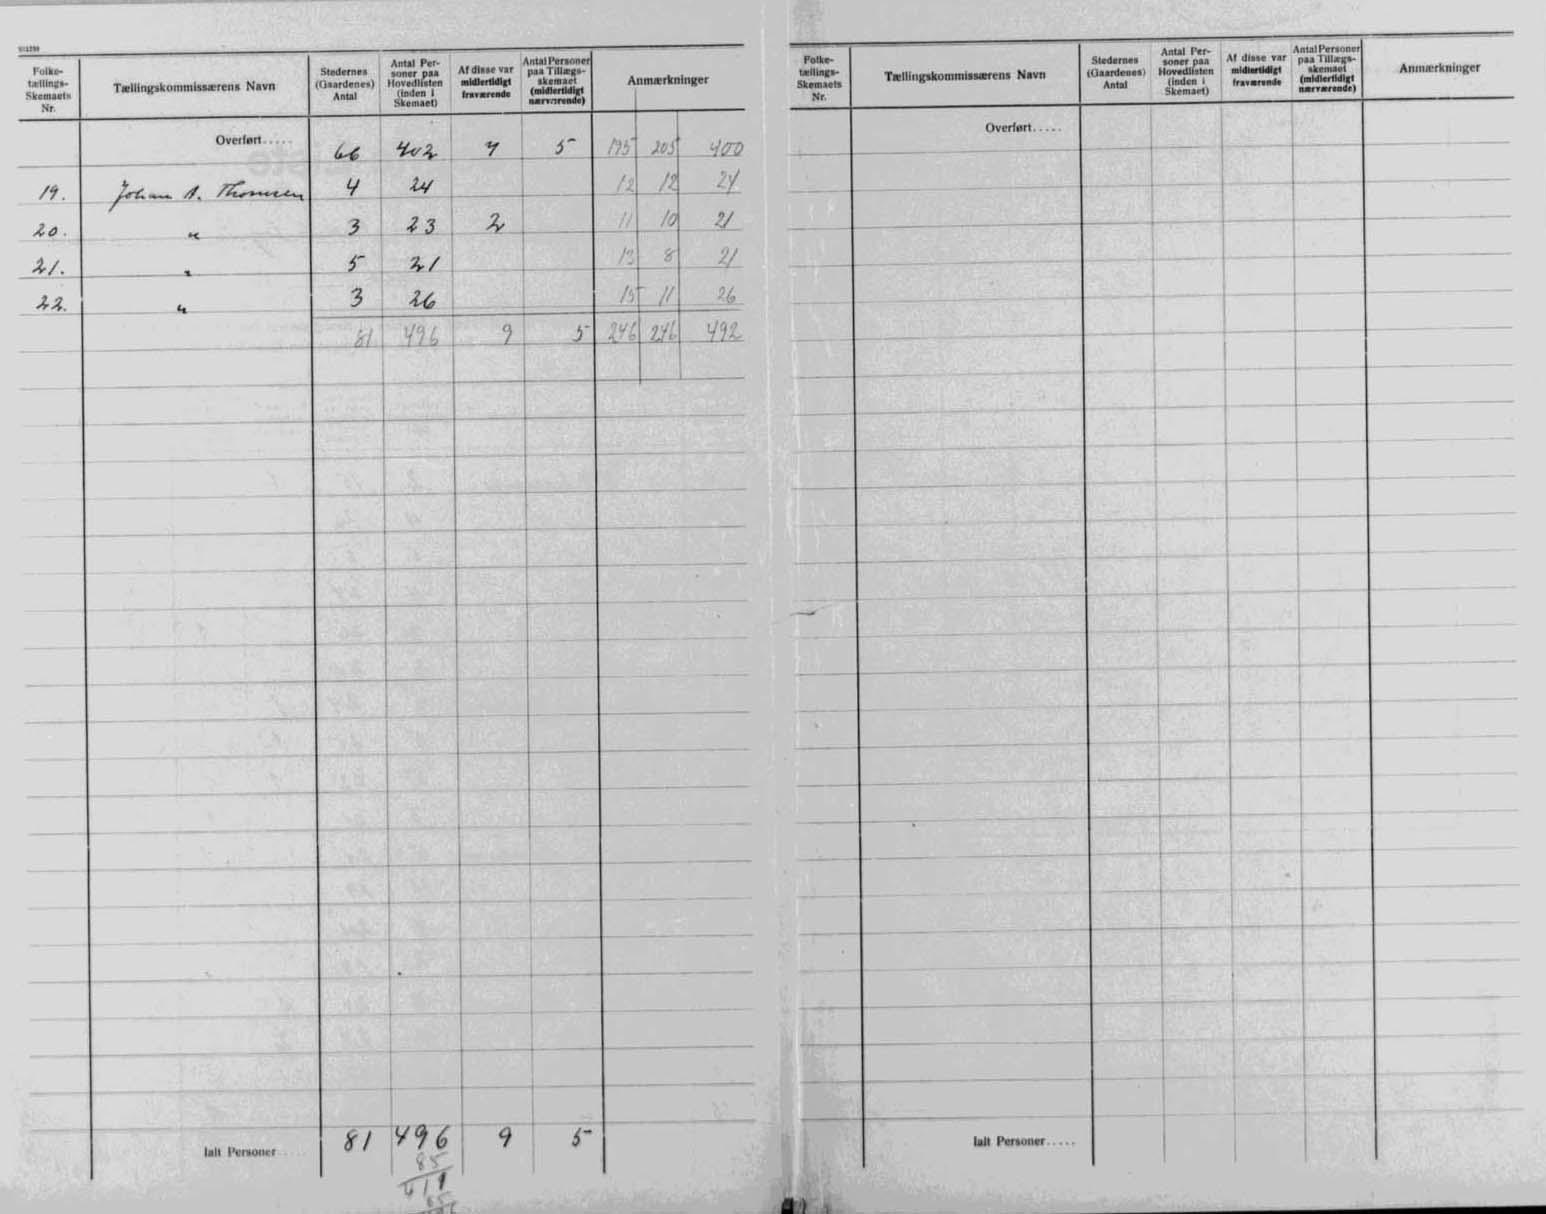 Folke-
tællings-
Skemaets
Nr.
Tællingskommissærens Navn
Stedernes
(Gaardenes)
Antal
Antal Per-
soner paa
Hovedlisten
(inden i
Skemaet)
Af disse var
midlertidigt
fraværende
Antal Personer
paa Tillægs-
skemaet
(midlertidigt
nærværende)
Anmærkninger
Overført..... 66 402 7 5 195 205 400
19. Johan A. Thomsen 4 24 12 12 24
20. " 3 23 2 11 10 21
21. " 5 21 13 8 21
22. " 3 26 15 11 26
81 496 9 5 246 246 492
Ialt Personer..... 81 496 9 5
85
Folke-
tællings-
Skemaets
Nr.
Tællingskommissærens Navn
Stedernes
(Gaardenes)
Antal
Antal Per-
soner paa
Hovedlisten
(inden i
Skemaet)
Af disse var
midlertidigt
fraværende
Antal Personer
paa Tillægs-
skemaet
(midlertidigt
nærværende)
Anmærkninger
Overført.....
Ialt Personer.....